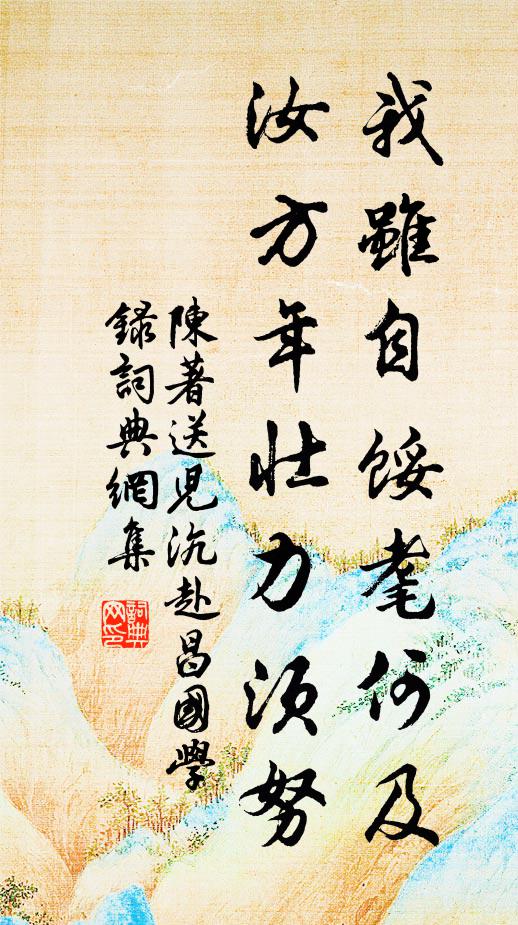 我雖自餒耄何及
汝方年壯力須努
陳著送兒沆赴昌國學
錄詞典網集
詞典網印